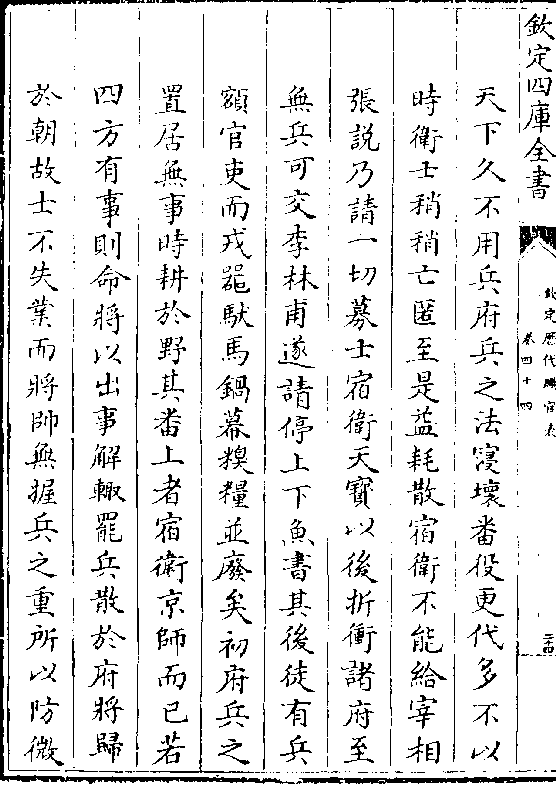 欽定四庫全書
欽定歷代職官表
卷四十四
二十四
天下久不用兵府兵之法寖壞番役更代多不以
時衛士稍稍亡匿至是益耗散宿衛不能給宰相
張説乃請一切募士宿衛天寶以後折衝諸府至
無兵可交李林甫遂請停上下魚書其後徒有兵
額官吏而戎器馱馬鍋幕糗糧並廢矣初府兵之
置居無事時耕於野其番上者宿衛京師而已若
四方有事則命將以出事解輙罷兵散於府將歸
於朝故士不失業而將帥無握兵之重所以防微